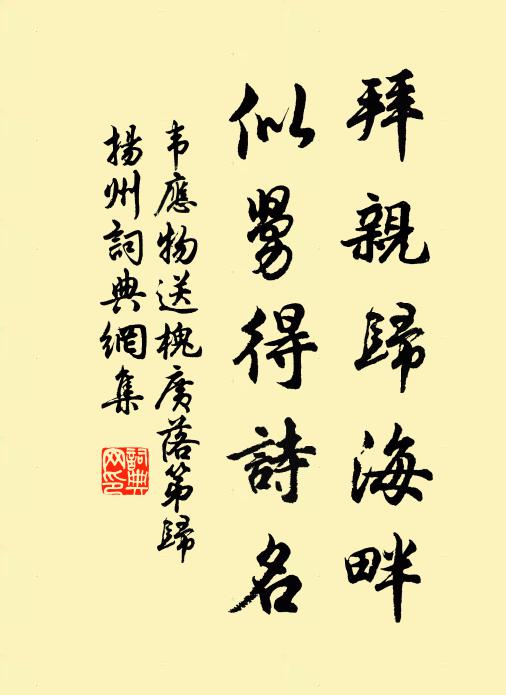 拜親歸海畔
似舅得詩名
韦應物送槐廣落第歸
揚州詞典網集
詞典网印